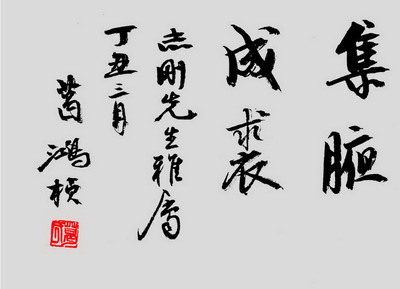 集腋
成裘
志刚先生雅属
丁丑三月
葛鸿桢